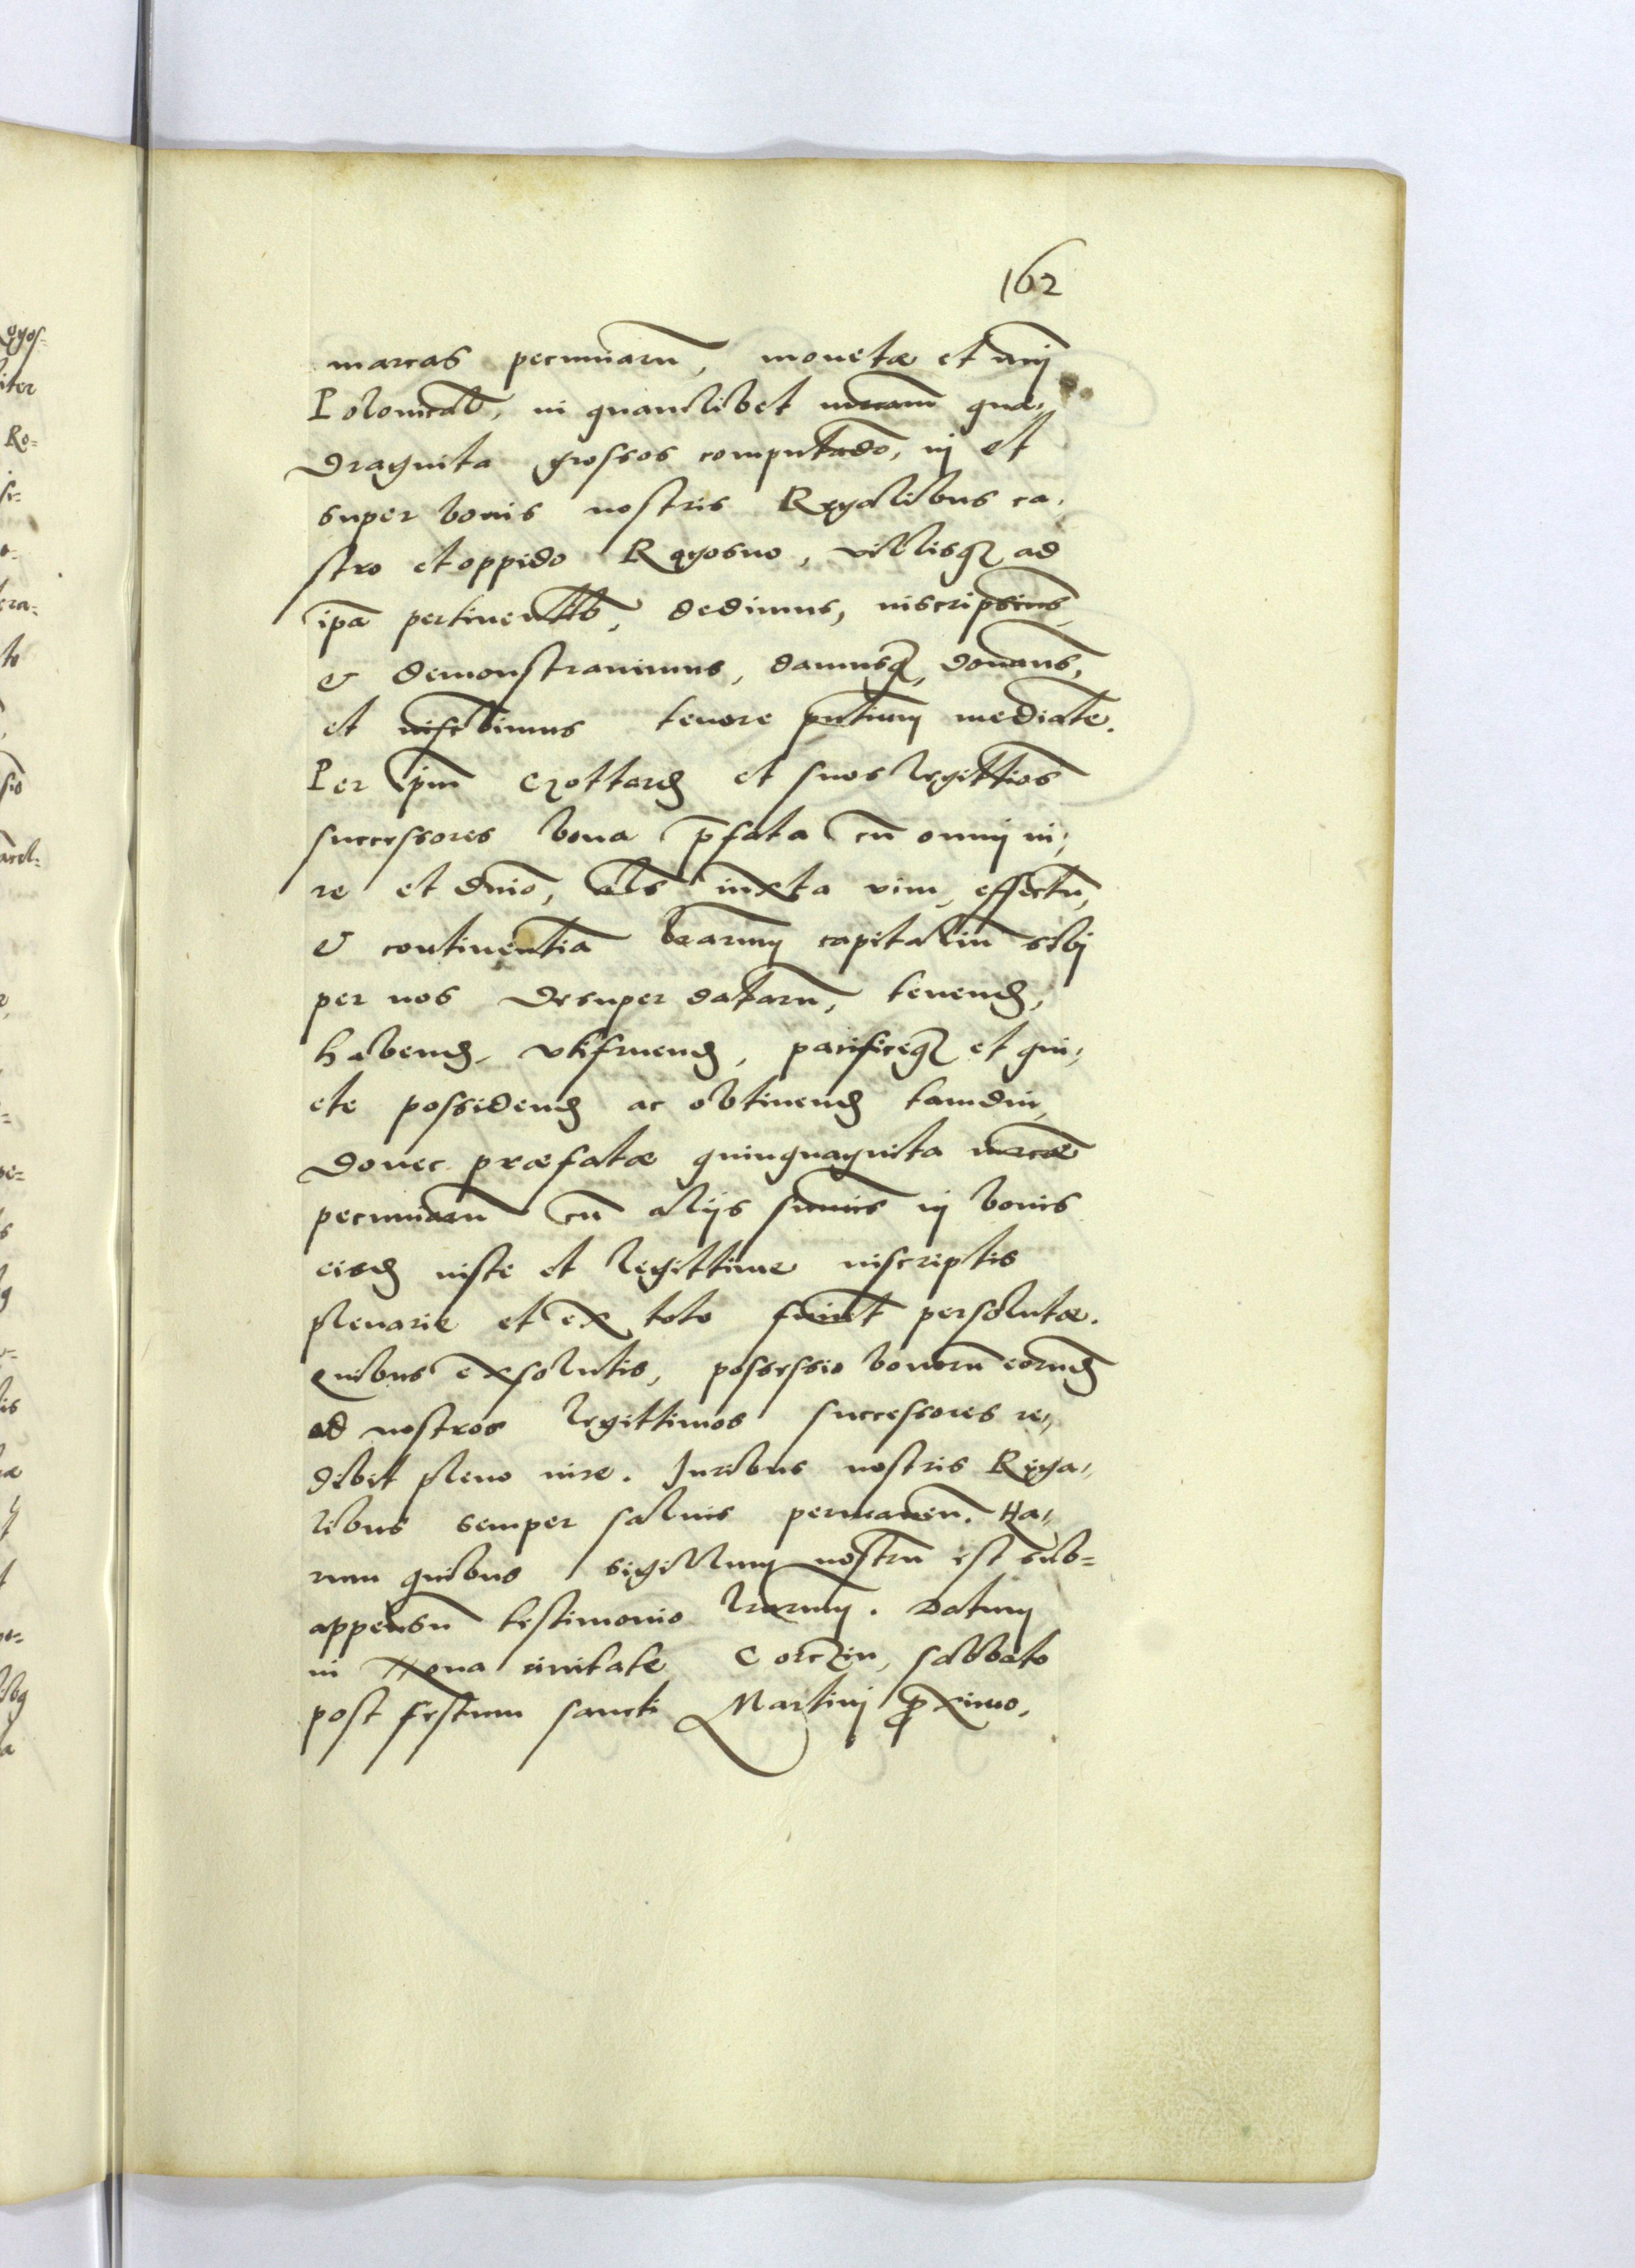 162
marcas pecuniarũ, monetæ et nũi
Polonicał, in quamlibet mrcam qua,,
draginta grossos computãdo, in et
super bonis nostris Regalibus ca,,
stro et oppido Rogosno, villisq3 ad
ipã pertinentib, dedimus, inscripsim9
& demonstrauimus, damusq3, donam9,
et inscbimus tenore pñtium mediãte.
Per ipm̃ Czottarꝫ et suos legittĩos
successores bona p̃fata cũ omni iu,,
re et dñio, als iuxta vim, effectũ,
& continentiã lr̃arum capitaliũ sibi
per nos desuper datarũ, tenendꝫ,
habendꝫ, vtifruendꝫ, pacificeq3 et qui,,
ete possidendꝫ ac obtinendꝫ tamdiu,
donec præfatæ quinquaginta mrcæ
pecuniarũ cũ alijs sum̃is in bonis
eisdꝫ iuste et legittime inscriptis
plenarie et ex toto fuerĩt persolutæ.
Quibus exsolutis, possessio bonorũ eorundꝫ
ad nostros legittimos successores re,,
dibit pleno iure. Iuribus nostris Rega,,
libus semper saluis permanen̄. Ha,,
rum quibus sigillum nostrũ est sub=
appensũ testimonio lr̃arum. Datum
in Noua ciuitate Corczin, sabbato
post festum sancti Martini proximo.